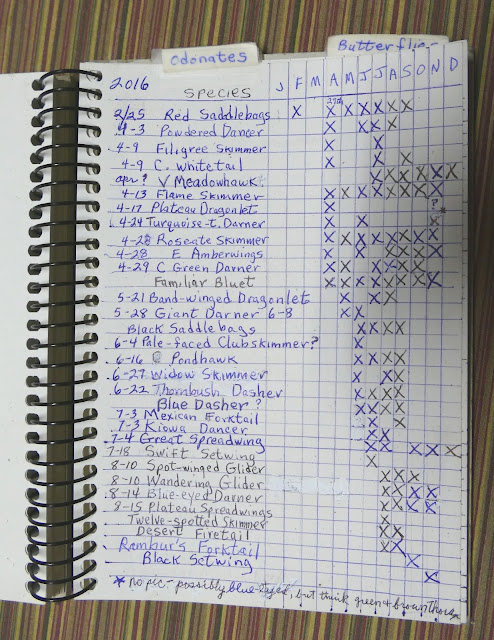 Odonates Butterflie
2016 SPECIES J F M A M J J A S O N D
2/25 Red Saddlebags X X X X X X X
4-3 Powdered Dancer X X X X
4-9 Filigree Skimmer X X
4-9 C. Whitetail X X X
apr? V Meadowhawk. X X X X X X
4-13 Flame Skimmer X X X X X X X X
4-17 Plateau Dragonlet X ?
4-24 Turquoise-t. Darner X X X *
4-28 Roseate Skimmer X X X X X X X X
4-28 E Amberwings X X X X X X
4-29 C Green Darner X X X X X X
Familiar Bluet X X X X X X X
5-21 Band-winged Dragonlet X X X
5-28 Giant Darner 6-8 X X
Black Saddlebags X X X X
6-4 Pale-faced Clubskimmer? X
6-16 E Pondhawk X X X X
6-27 Widow Skimmer X X X
6-22 Thornbush Dasher X X X X
Blue Dasher ? X X X X
7-3 Mexican Forktail X X
7-3 Kiowa Dancer X X
7-4 Great Spreadwing X X X X X
7-18 Swift Setwing X
8-10 Spot-winged Glider X X X
8-10 Wandering Glider X X X X
8-14 Blue-eyed Darner X X X X
8-15 Plateau Spreadwings X X X X
Twelve-spotted Skimmer X
Desert Firetail X X
Rambur's Forktail X X
Black Setwing X
X
* no pic - possibly blue-eyed, but think green + brown thorax